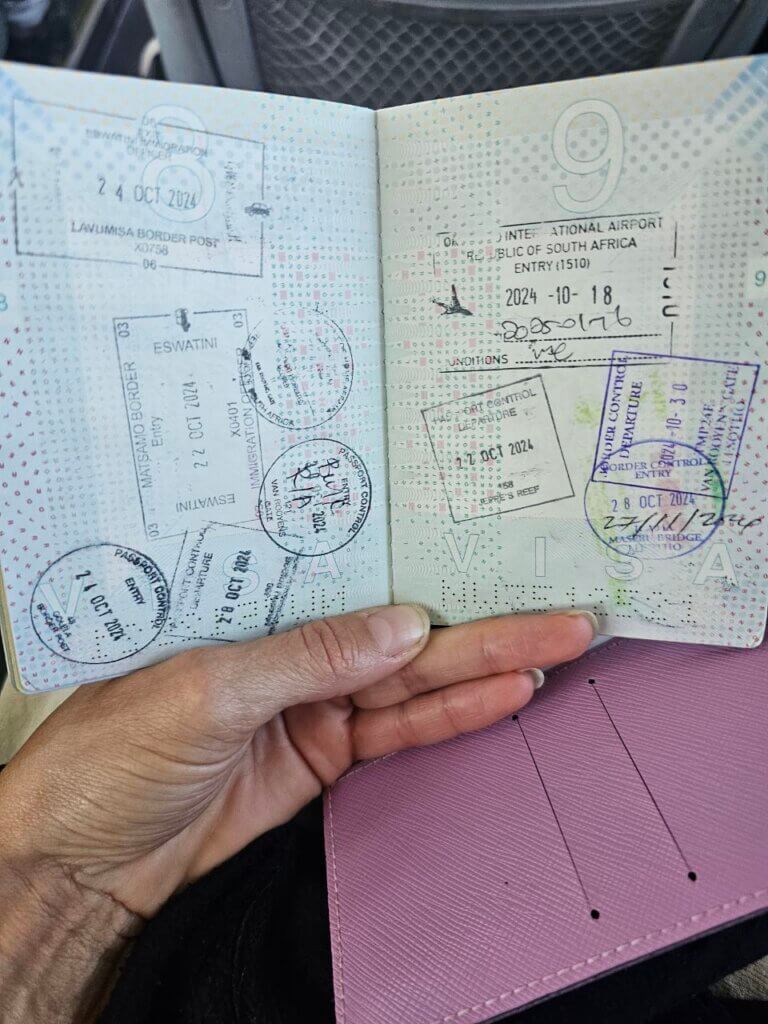 8
ESWATINI IMMIGRATION
OFFICER
24 OCT 2024
LAVUMISA BORDER POST
X0758
06
03 03
ESWATINI
MATSAMO BORDER
Entry
22 OCT 2024
X0401
IMMIGRATION
ESWATINI
03
PASSPORT CONTROL
ENTRY
2024
VAN ROOYENS
GATE
PASSPORT CONTROL
ENTRY
24 OCT 2024
GOLELA
BORDER POST
DEPARTURE
28 OCT 2024
VISA
9
9
INTERNATIONAL AIRPORT
REPUBLIC OF SOUTH AFRICA
ENTRY (1510)
2024 -10- 18
CONDITIONS
PASSPORT CONTROL
DEPARTURE
22 OCT 2024
JEPPE'S REEF
BORDER CONTROL
DEPARTURE
2024-10-30
VAN ROOYEN'S GATE
LESOTHO
BORDER CONTROL
ENTRY
28 OCT 2024
27/11/2024
MASERU BRIDGE
LESOTHO
VISA